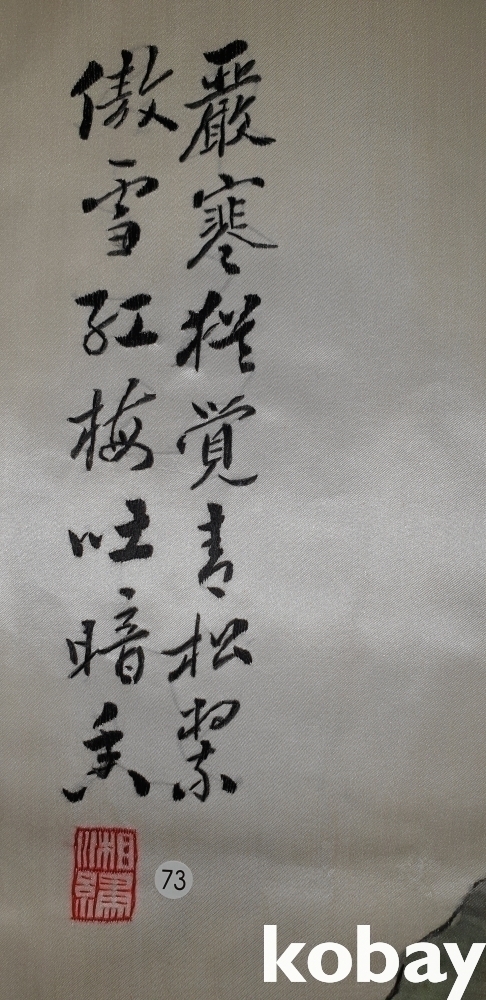 嚴寒猶覺青松
傲雪紅梅吐暗香
湘繡
73
kobay